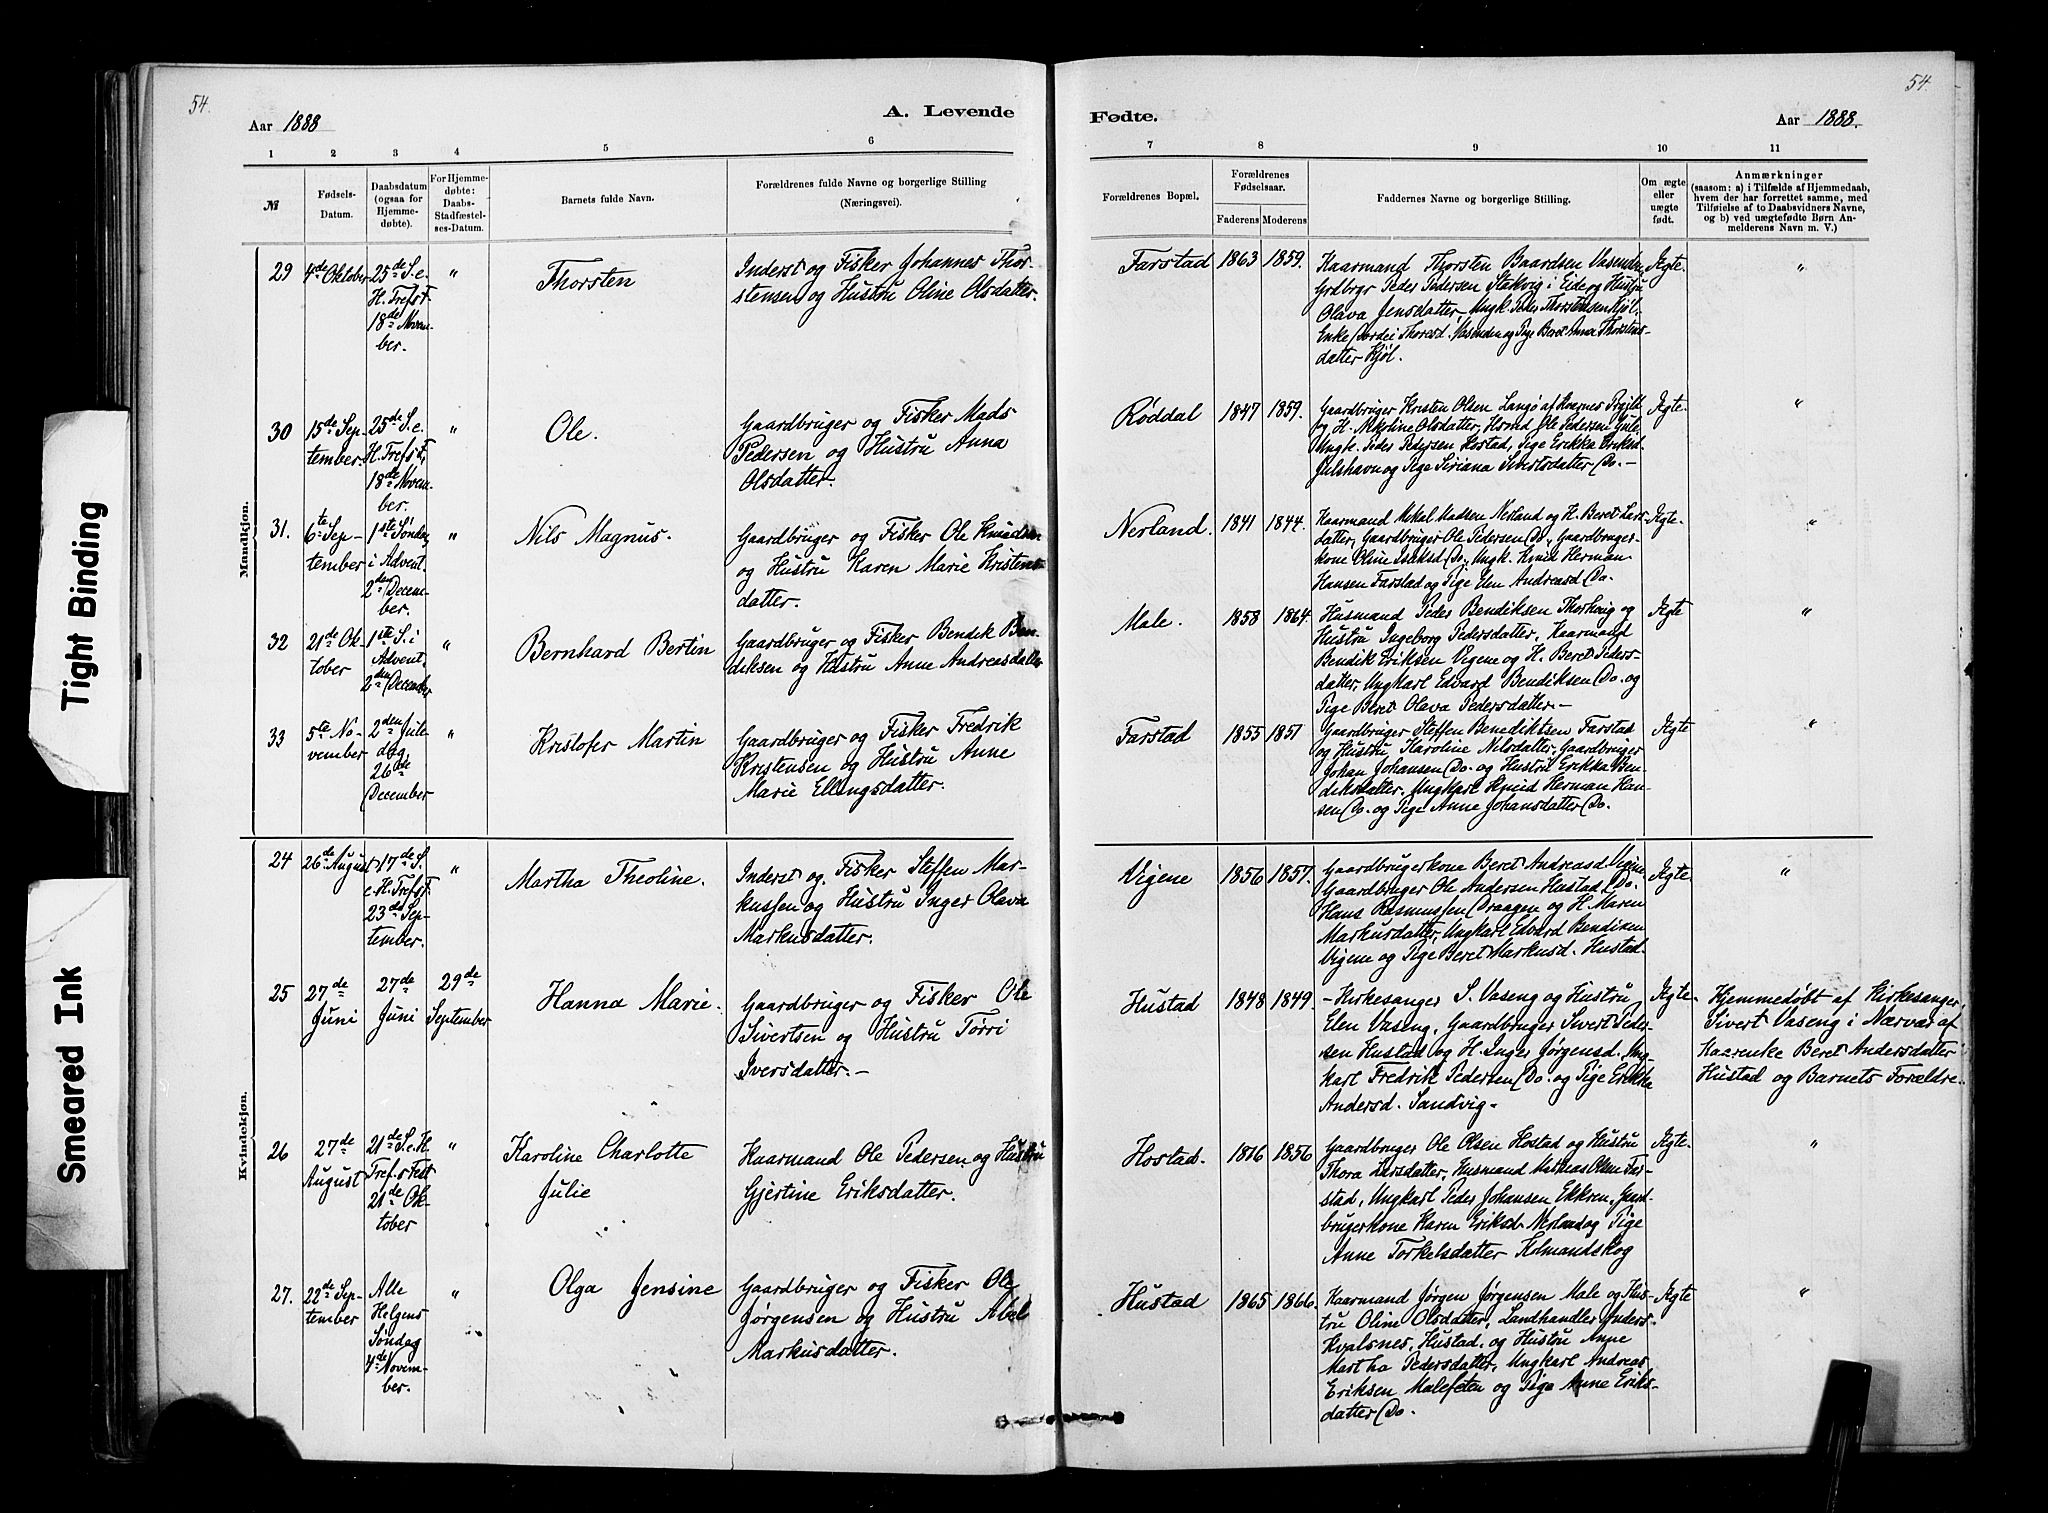 Tight Binding
Smeared Ink
54.
Aar 1888
A. Levende
1 2 3 4 5 6
№
Fødsels-
Datum.
Daabsdatum
(ogsaa for
Hjemme-
døbte).
For Hjemme-
døbte:
Daabs-
Stadfæstel-
ses-Datum.
Barnets fulde Navn.
Forældrenes fulde Navne og borgerlige Stilling
(Næringsvei).
Mandkjøn.
29
4de Oktober
25de S. e.
H. Trefst.
18de Novem-
ber.
"
Thorsten
Inderst og Fisker Johannes Thor-
stensen og Hustru Oline Olsdatter.
30
15de Sep-
tember.
25de S. e.
H. Trefst.
18de Novem-
ber.
"
Ole.
Gaardbruger og Fisker Mads
Pedersen og Hustru Anna
Olsdatter.
31.
6te Sep-
tember
1ste Søndag
i Advent.
2den Decem-
ber.
"
Nils Magnus.
Gaardbruger og Fisker Ole Knudsen
og Hustru Karen Marie Kristens-
datter.
32
21de Ok-
tober
1ste S. i
Advent.
2den December
"
Bernhard Bertin
Gaardbruger og Fisker Bendik Ben-
diksen og Hustru Anne Andreasdatter
33
5te No-
vember
2den Jule-
dag
26de
December
"
Kristofer Martin
Gaardbruger og Fisker Fredrik
Kristensen og Hustru Anne
Marie Ellingsdatter.
Kvindekjøn.
24
26de August
17de S.
e. H. Trefst.
23de Sep-
tember.
"
Martha Theoline.
Inderst og Fisker Steffen Mar-
kussen og Hustru Inger Olava
Markusdatter.
25
27de
Juni
27de
Juni
29de
September
Hanna Marie.
Gaardbruger og Fisker Ole
Sivertsen og Hustru Tørri
Iversdatter.-
26
27de
August
21de S. e. H.
Tref.s Fest
21de Ok-
tober
"
Karoline Charlotte
Julie
Kaarmand Ole Pedersen og Hustru
Gjertine Eriksdatter.
27.
22de Sep-
tember
Alle
Helgens
Søndag
4de Novem-
ber.
"
Olga Jensine
Gaardbruger og Fisker Ole
Jørgensen og Hustru Abel
Markusdatter.
54.
Fødte.
Aar 1888.
7 8 9 10 11
Forældrenes Bopæl.
Forældrenes
Fødselsaar.
Faderens Moderens
Faddernes Navne og borgerlige Stilling.
Om ægte
eller
uægte
født.
Anmærkninger
(saasom: a) i Tilfælde af Hjemmedaab,
hvem der har forrettet samme, med
Tilføielse af to Daabsvidners Navne,
og b) ved uægtefødte Børn An-
melderens Navn m. V.)
Farstad 1863 1859.
Kaarmand Thorsten Baardsen Vasenden,
Grdbrgr Peder Pedersen Stakvig i Eide og Hustru
Olava Jensdatter, Ungk. Peder Thorstensen Kjøl,
Enke Thoresd. Vasenden og Pige Beret Anna Thorstens-
datter Kjøl.
Ægte-
"
Røddal 1847 1859.
Gaardbruger Kristen Olsen Langø af Kvernes
og H. Olsdatter, Ole Pedersen
Ungk. Peder Pedersen Hostad, Pige Erikka Eriksd.
Julshavn og Pige Siriana Sivertsdatter Do.-
Ægte-
"
Nerland. 1841 1844.
Kaarmand Mikal Madsen Nerland og H. Beret Lars-
datter, Gaardbruger Ole Pedersen Do, Gaardbruger-
kone Oline Do, Ungk. Knud Herman
Hansen Farstad og Pige Elen Andreasd Do.
Ægte-
"
Male. 1858 1864.
Husmand Peder Bendiksen Thorhvig og
Hustru Ingeborg Pedersdatter, Kaarmand
Bendik Eriksen Vigene og H. Beret Peders-
datter, Ungkarl Edvard Bendiksen Do. og
Pige Beret Olava Pedersdatter.-
Ægte
"
Farstad 1855 1851
Gaardbruger Steffen Benediktsen Farstad
og Hustru Karoline Nilsdatter, Gaardbruger
Johan Johansen Do. og Hustru Erikka Ben-
diksdatter, Ungkarl Knud Herman Han-
sen Do. og Pige Anne Johansdatter Do.
Ægte
"
Vigene 1856 1857.
Gaardbrugerkone Beret Andreasd Vigene,
Gaardbruger Ole Andersen Hustad, Do.
Hans Rasmussen Draagen og H. Maren
Markusdatter, Ungkarl Edvard Bendiksen
Vigene og Pige Beret Markusd. Hustad.
Ægte
"
Hustad 1848 1849.
- Kirkesanger S. Vaseng og Hustru
Elen Vaseng, Gaardbruger Sivert Peder-
sen Hustad og H. Inger Jørgensd. Ung-
karl Fredrik Pedersen Do. og Pige Erikka
Andersd. Sandvig-
Ægte-
Hjemmedøbt af Kirkesanger
Sivert Vaseng i Nærvær af
Kaarenke Beret Andersdatter
Hustad og Barnets Forældre.
Hostad. 1816 1856
Gaardbruger Ole Olsen Hostad og Hustru
Thora Larsdatter, Husmand Mathias Olsen Far-
stad, Ungkarl Peder Johansen Ekkren, Gaard-
brugerkone Karen Eriksd. Nerland og Pige
Anne Torkelsdatter Holmandskog
Ægte-
"
Hustad 1865 1866.
Kaarmand Jørgen Jørgensen Male og Hus-
tru Oline Olsdatter, Landhandler Anders
Kvalsnes, Hustad, og Hustru Anne
Martha Pedersdatter, Ungkarl Andreas
Eriksen Malefeten og Pige Anne Eriks-
datter Do.
Ægte
"